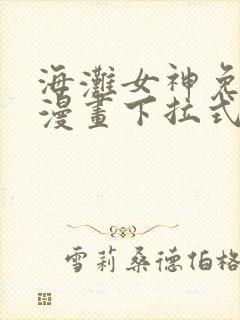 海灘女神免
漫畫下拉式
雪莉桑德伯格